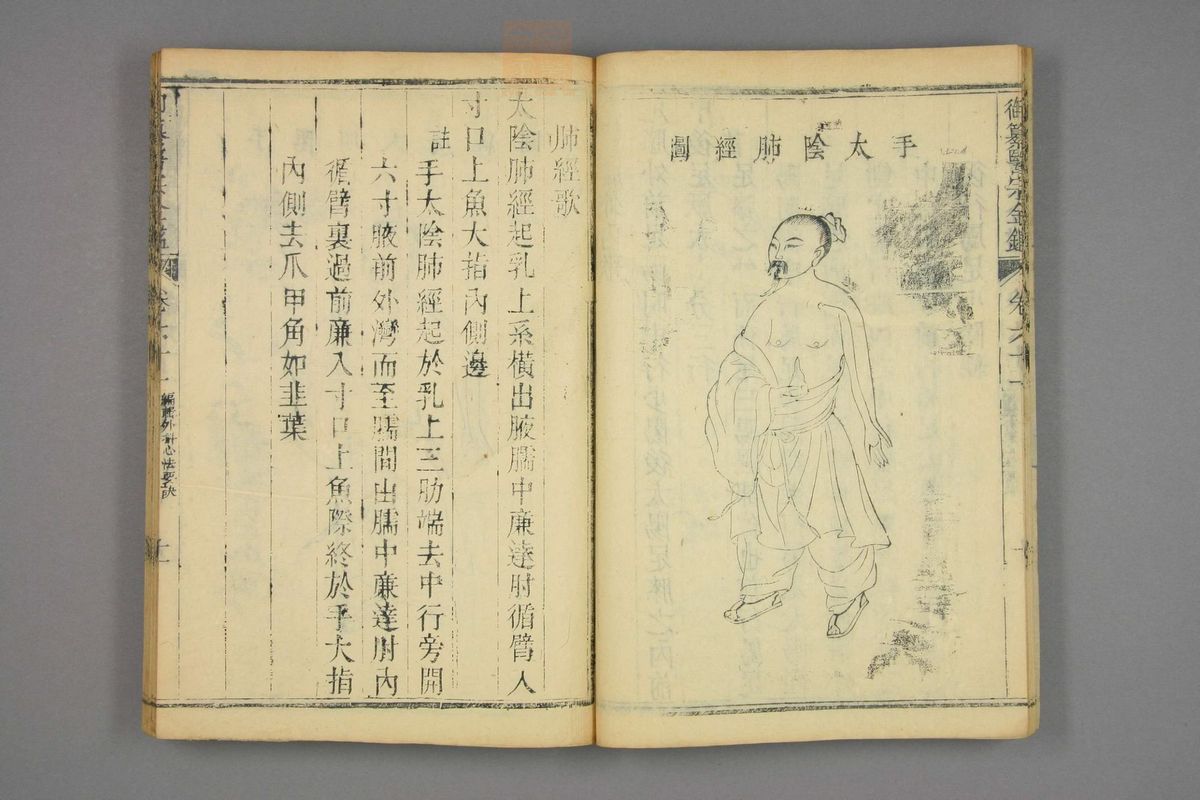 御纂醫宗金鑑
卷六十一
手太陰肺經圖
肺經歌
太陰肺經起乳上系橫出腋臑中廉達肘循臂入
寸口上魚大指內側邊
註手太陰肺經起於乳上三肋端去中行旁開
六寸腋前外灣而至臑間出臑中廉達肘內
循臂裏過前廉入寸口上魚際終於手大指
內側去爪甲角如韭葉
編輯外科心法要訣
十一